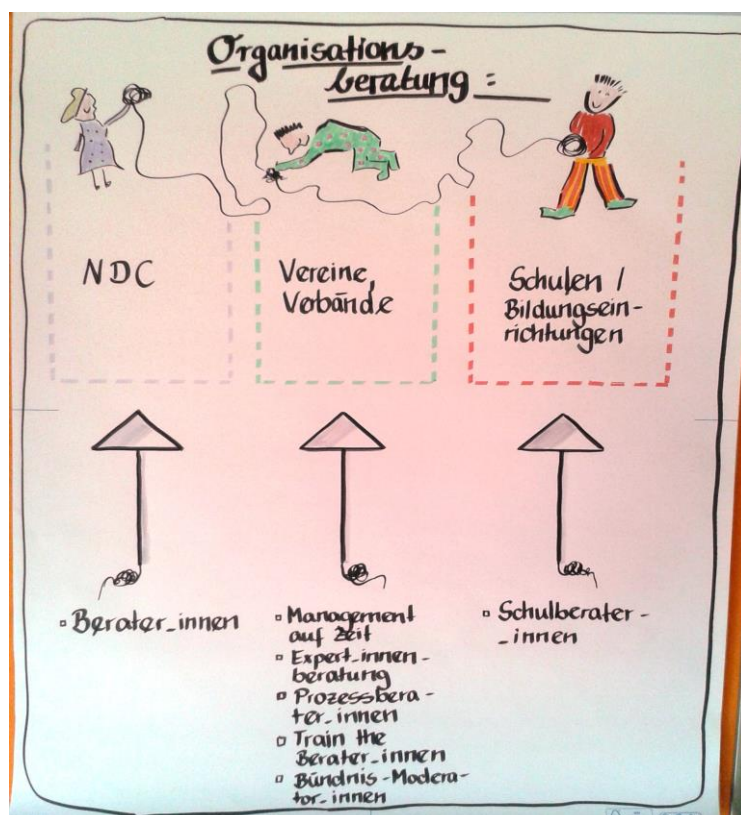 Organisations-
beratung:
NDC
Vereine,
Vebände
Schulen /
Bildungsein-
richtungen
▫ Berater_innen
▫ Management
auf Zeit
▫ Expert_innen-
beratung
▫ Prozessbera-
ter_innen
▫ Train the
Berater_innen
▫ Bündnis-Modera-
tor_innen
▫ Schulberater-
_innen